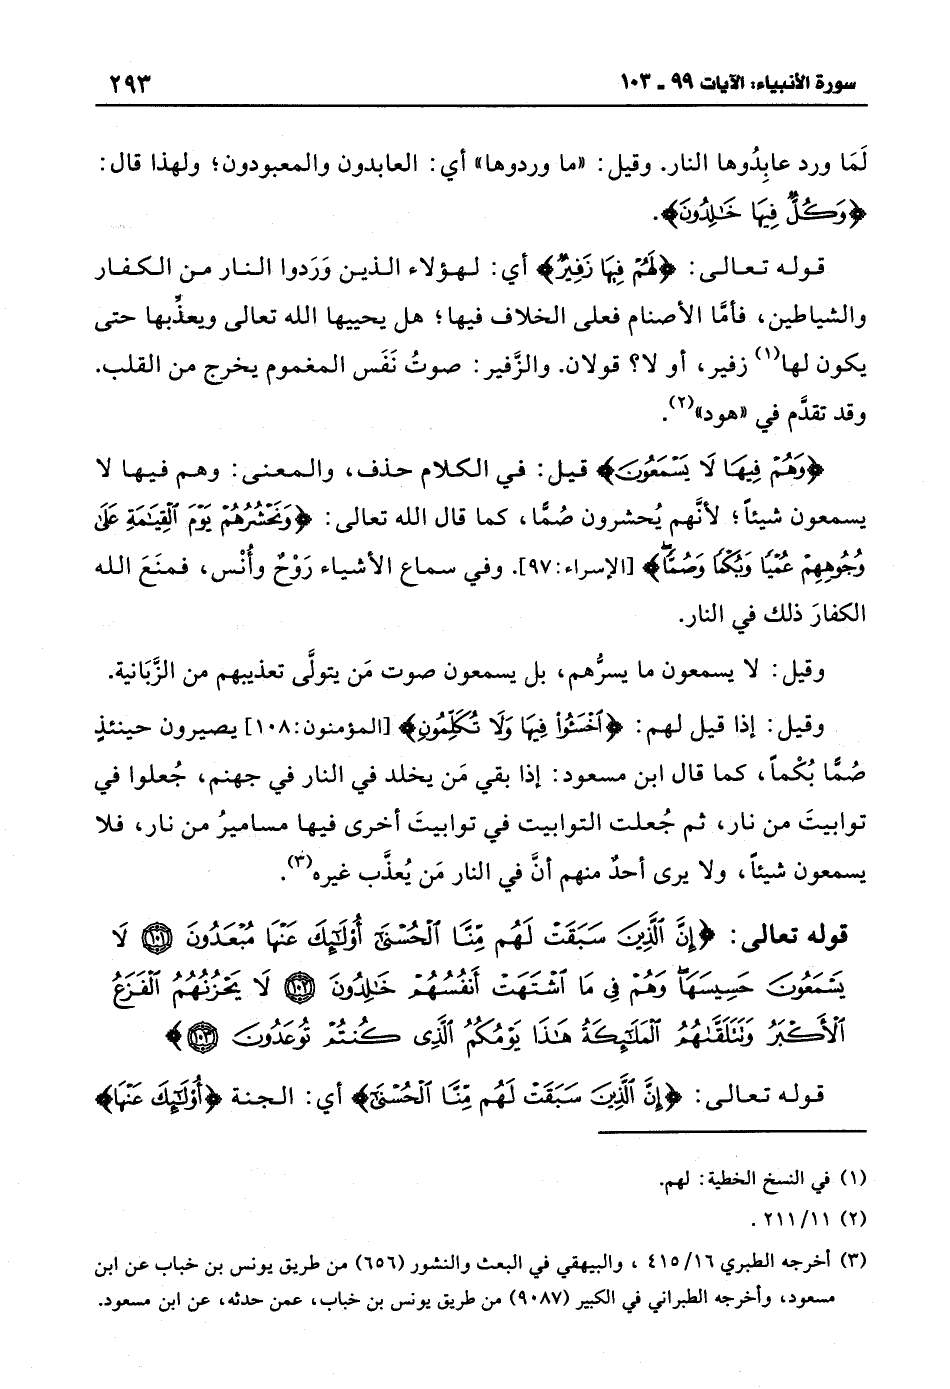 سورة الأنبياء: الآيات ٩٩ ـ ١٠٣
٢٩٣
لَمَا ورد عابِدُوها النار. وقيل: «ما وردوها» أي: العابدون والمعبودون؛ ولهذا قال:
﴿وَكُلٌّ فِيهَا خَٰلِدُونَ﴾.
قوله تعالى: ﴿لَهُمْ فِيهَا زَفِيرٌ﴾ أي: لهؤلاء الذين وَرَدوا النار من الكفار
والشياطين، فأمَّا الأصنام فعلى الخلاف فيها؛ هل يحييها الله تعالى ويعذِّبها حتى
يكون لها(١) زفير، أو لا؟ قولان. والزَّفير: صوتُ نَفَس المغموم يخرج من القلب.
وقد تقدَّم في «هود»(٢).
﴿وَهُمْ فِيهَا لَا يَسْمَعُونَ﴾ قيل: في الكلام حذف، والمعنى: وهم فيها لا
يسمعون شيئاً؛ لأنَّهم يُحشرون صُمًّا، كما قال الله تعالى: ﴿وَنَحْشُرُهُمْ يَوْمَ ٱلْقِيَٰمَةِ عَلَىٰ
وُجُوهِهِمْ عُمْيًا وَبُكْمًا وَصُمًّا﴾ [الإسراء:٩٧]. وفي سماع الأشياء رَوْحٌ وأُنْس، فمنَعَ الله
الكفارَ ذلك في النار.
وقيل: لا يسمعون ما يسرُّهم، بل يسمعون صوت مَن يتولَّى تعذيبهم من الزَّبَانية.
وقيل: إذا قيل لهم: ﴿ٱخْسَـُٔوا۟ فِيهَا وَلَا تُكَلِّمُونِ﴾ [المؤمنون:١٠٨] يصيرون حينئذٍ
صُمًّا بُكْماً، كما قال ابن مسعود: إذا بقي مَن يخلد في النار في جهنم، جُعلوا في
توابيتَ من نار، ثم جُعلت التوابيت في توابيتَ أخرى فيها مساميرُ من نار، فلا
يسمعون شيئاً، ولا يرى أحدٌ منهم أنَّ في النار مَن يُعذَّب غيره(٣).
قوله تعالى: ﴿إِنَّ ٱلَّذِينَ سَبَقَتْ لَهُم مِّنَّا ٱلْحُسْنَىٰٓ أُو۟لَٰٓئِكَ عَنْهَا مُبْعَدُونَ ١٠١ لَا
يَسْمَعُونَ حَسِيسَهَا ۖ وَهُمْ فِى مَا ٱشْتَهَتْ أَنفُسُهُمْ خَٰلِدُونَ ١٠٢ لَا يَحْزُنُهُمُ ٱلْفَزَعُ
ٱلْأَكْبَرُ وَتَتَلَقَّىٰهُمُ ٱلْمَلَٰٓئِكَةُ هَٰذَا يَوْمُكُمُ ٱلَّذِى كُنتُمْ تُوعَدُونَ ١٠٣﴾
قوله تعالى: ﴿إِنَّ ٱلَّذِينَ سَبَقَتْ لَهُم مِّنَّا ٱلْحُسْنَىٰٓ﴾ أي: الجنة ﴿أُو۟لَٰٓئِكَ عَنْهَا﴾
(١) في النسخ الخطية: لهم.
(٢) ٢١١/١١ .
(٣) أخرجه الطبري ٤١٥/١٦ ، والبيهقي في البعث والنشور (٦٥٦) من طريق يونس بن خباب عن ابن
مسعود، وأخرجه الطبراني في الكبير (٩٠٨٧) من طريق يونس بن خباب، عمن حدثه، عن ابن مسعود.